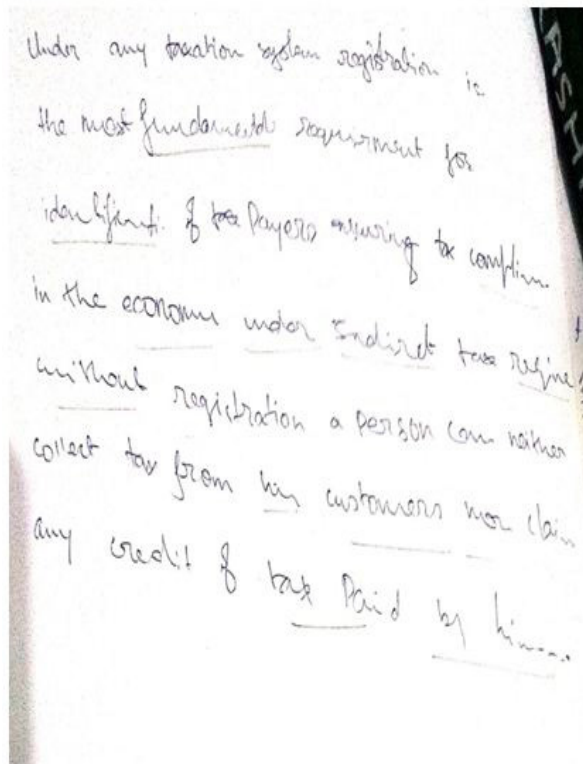 Under any taxation system registration is
the most fundamental requirment for
identificati. of tax Payers ensuring tax complian..
in the economu under Indirect taxe regine
without registration a person can neither
collect tax from his customers nor claim
any credit of tax Paid by him....
ASH